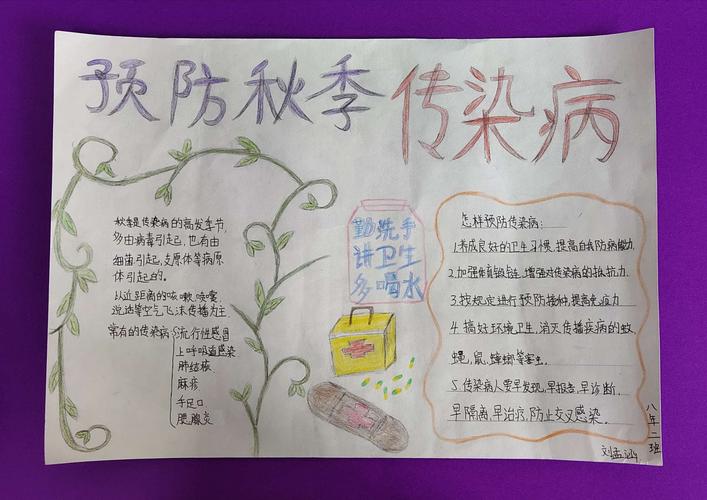 预防秋季传染病
秋季是传染病的高发季节,
多由病毒引起,也有由
细菌引起,支原体等病原
体引起的。
以近距离的咳嗽,喷嚏,
说话等空气飞沫传播为主.
常有的传染病:流行性感冒
上呼吸道感染
肺结核
麻疹
手足口
腮腺炎
勤洗手
讲卫生
多喝水
怎样预防传染病:
1.养成良好的卫生习惯,提高自我防病能力.
2.加强体育锻链,增强对传染病的抵抗力.
3.按规定进行预防接种,提高免疫力
4.搞好环境卫生,消灭传播疾病的蚊
蝇,鼠,蟑螂等害虫.
5.传染病人要早发现,早报告,早诊断,
早隔离,早治疗,防止交叉感染.
八年二班
刘孟